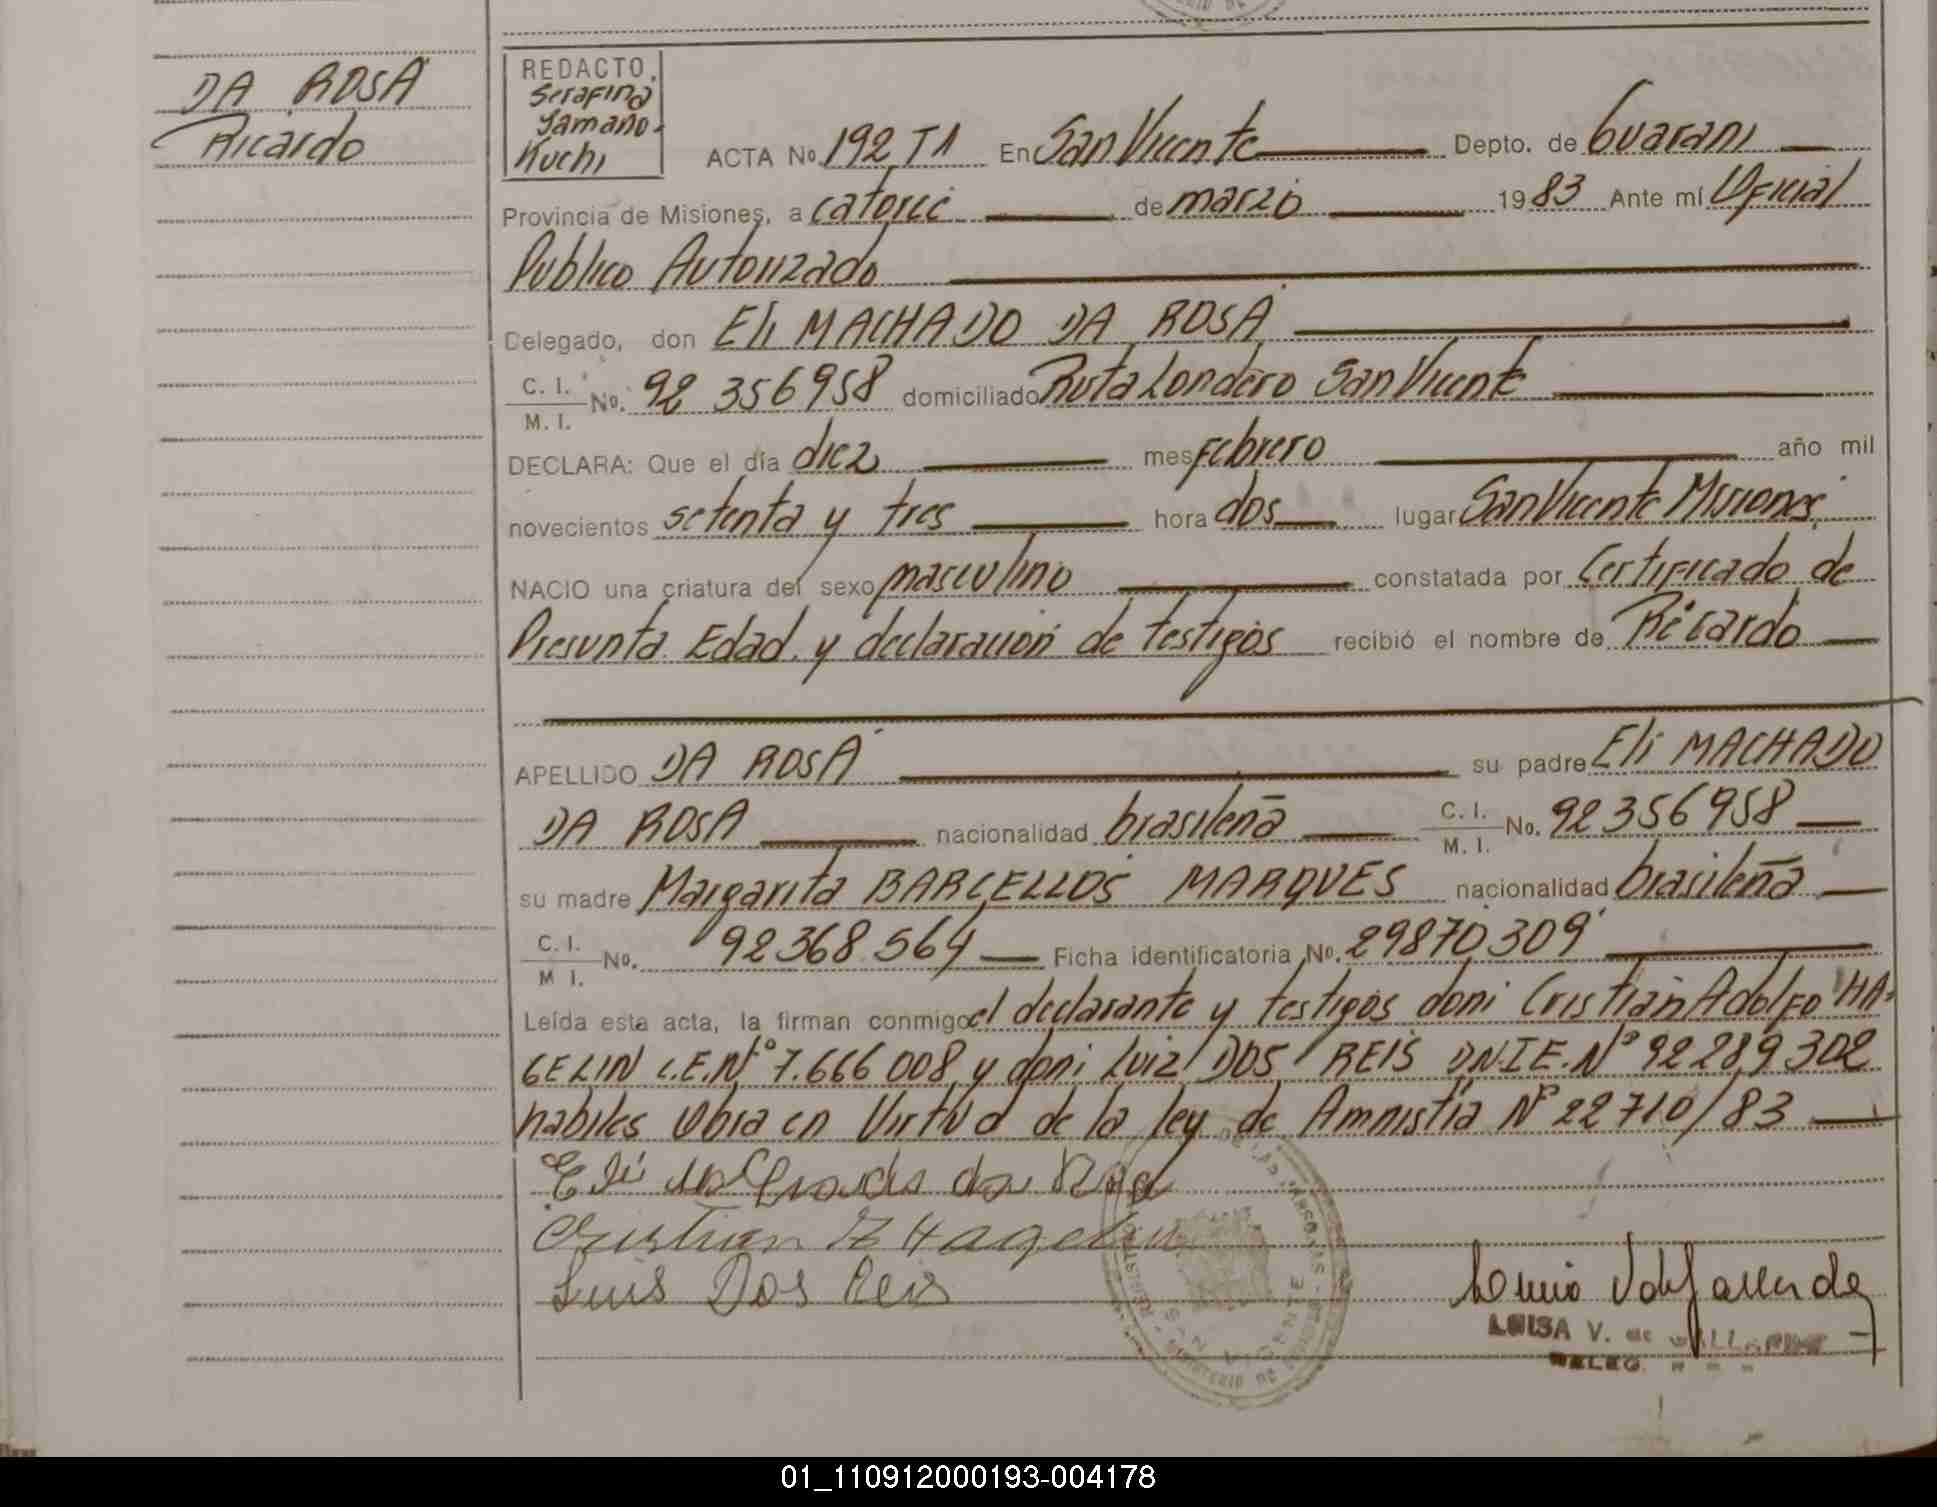 DA ROSA
Ricardo
REDACTO.
Serafina
Yamaño.
Kuchi
ACTA No. 192 T1 En San Vicente Depto. de Guarani
Provincia de Misiones, a catorce de marzo 1983 Ante mí Oficial
Publico Autorizado
Delegado, don Eli MACHADO DA ROSA
C. I. / M. I. No. 92 356958 domiciliado Ruta Londero San Vicente
DECLARA: Que el día diez mes Febrero año mil
novecientos setenta y tres hora dos lugar San Vicente Misiones
NACIO una criatura del sexo masculino constatada por Certificado de
Presunta Edad y declaración de testigos recibió el nombre de Ricardo
APELLIDO DA ROSA su padre Eli MACHADO
DA ROSA nacionalidad brasileña C. I. / M. I. No. 92 356958
su madre Margarita BARCELLOS MARQUES nacionalidad brasileña
C. I. / M I. No. 92368564 Ficha identificatoria No. 29870309
Leída esta acta, la firman conmigo el declarante y testigos don: Cristian Adolfo HA-
GELIN L.E.Nº 7.666 008 y don: Luiz DOS REIS DNIE.Nº 92289302
habiles Obra en Virtud de la ley de Amnistia Nº 22710/83
Eli Machado da Rosa
Cristian A Hagelin
Luis Dos Reis
SAN VICENTE
LUISA V. de GALLARDO
DELEG.
01_110912000193-004178